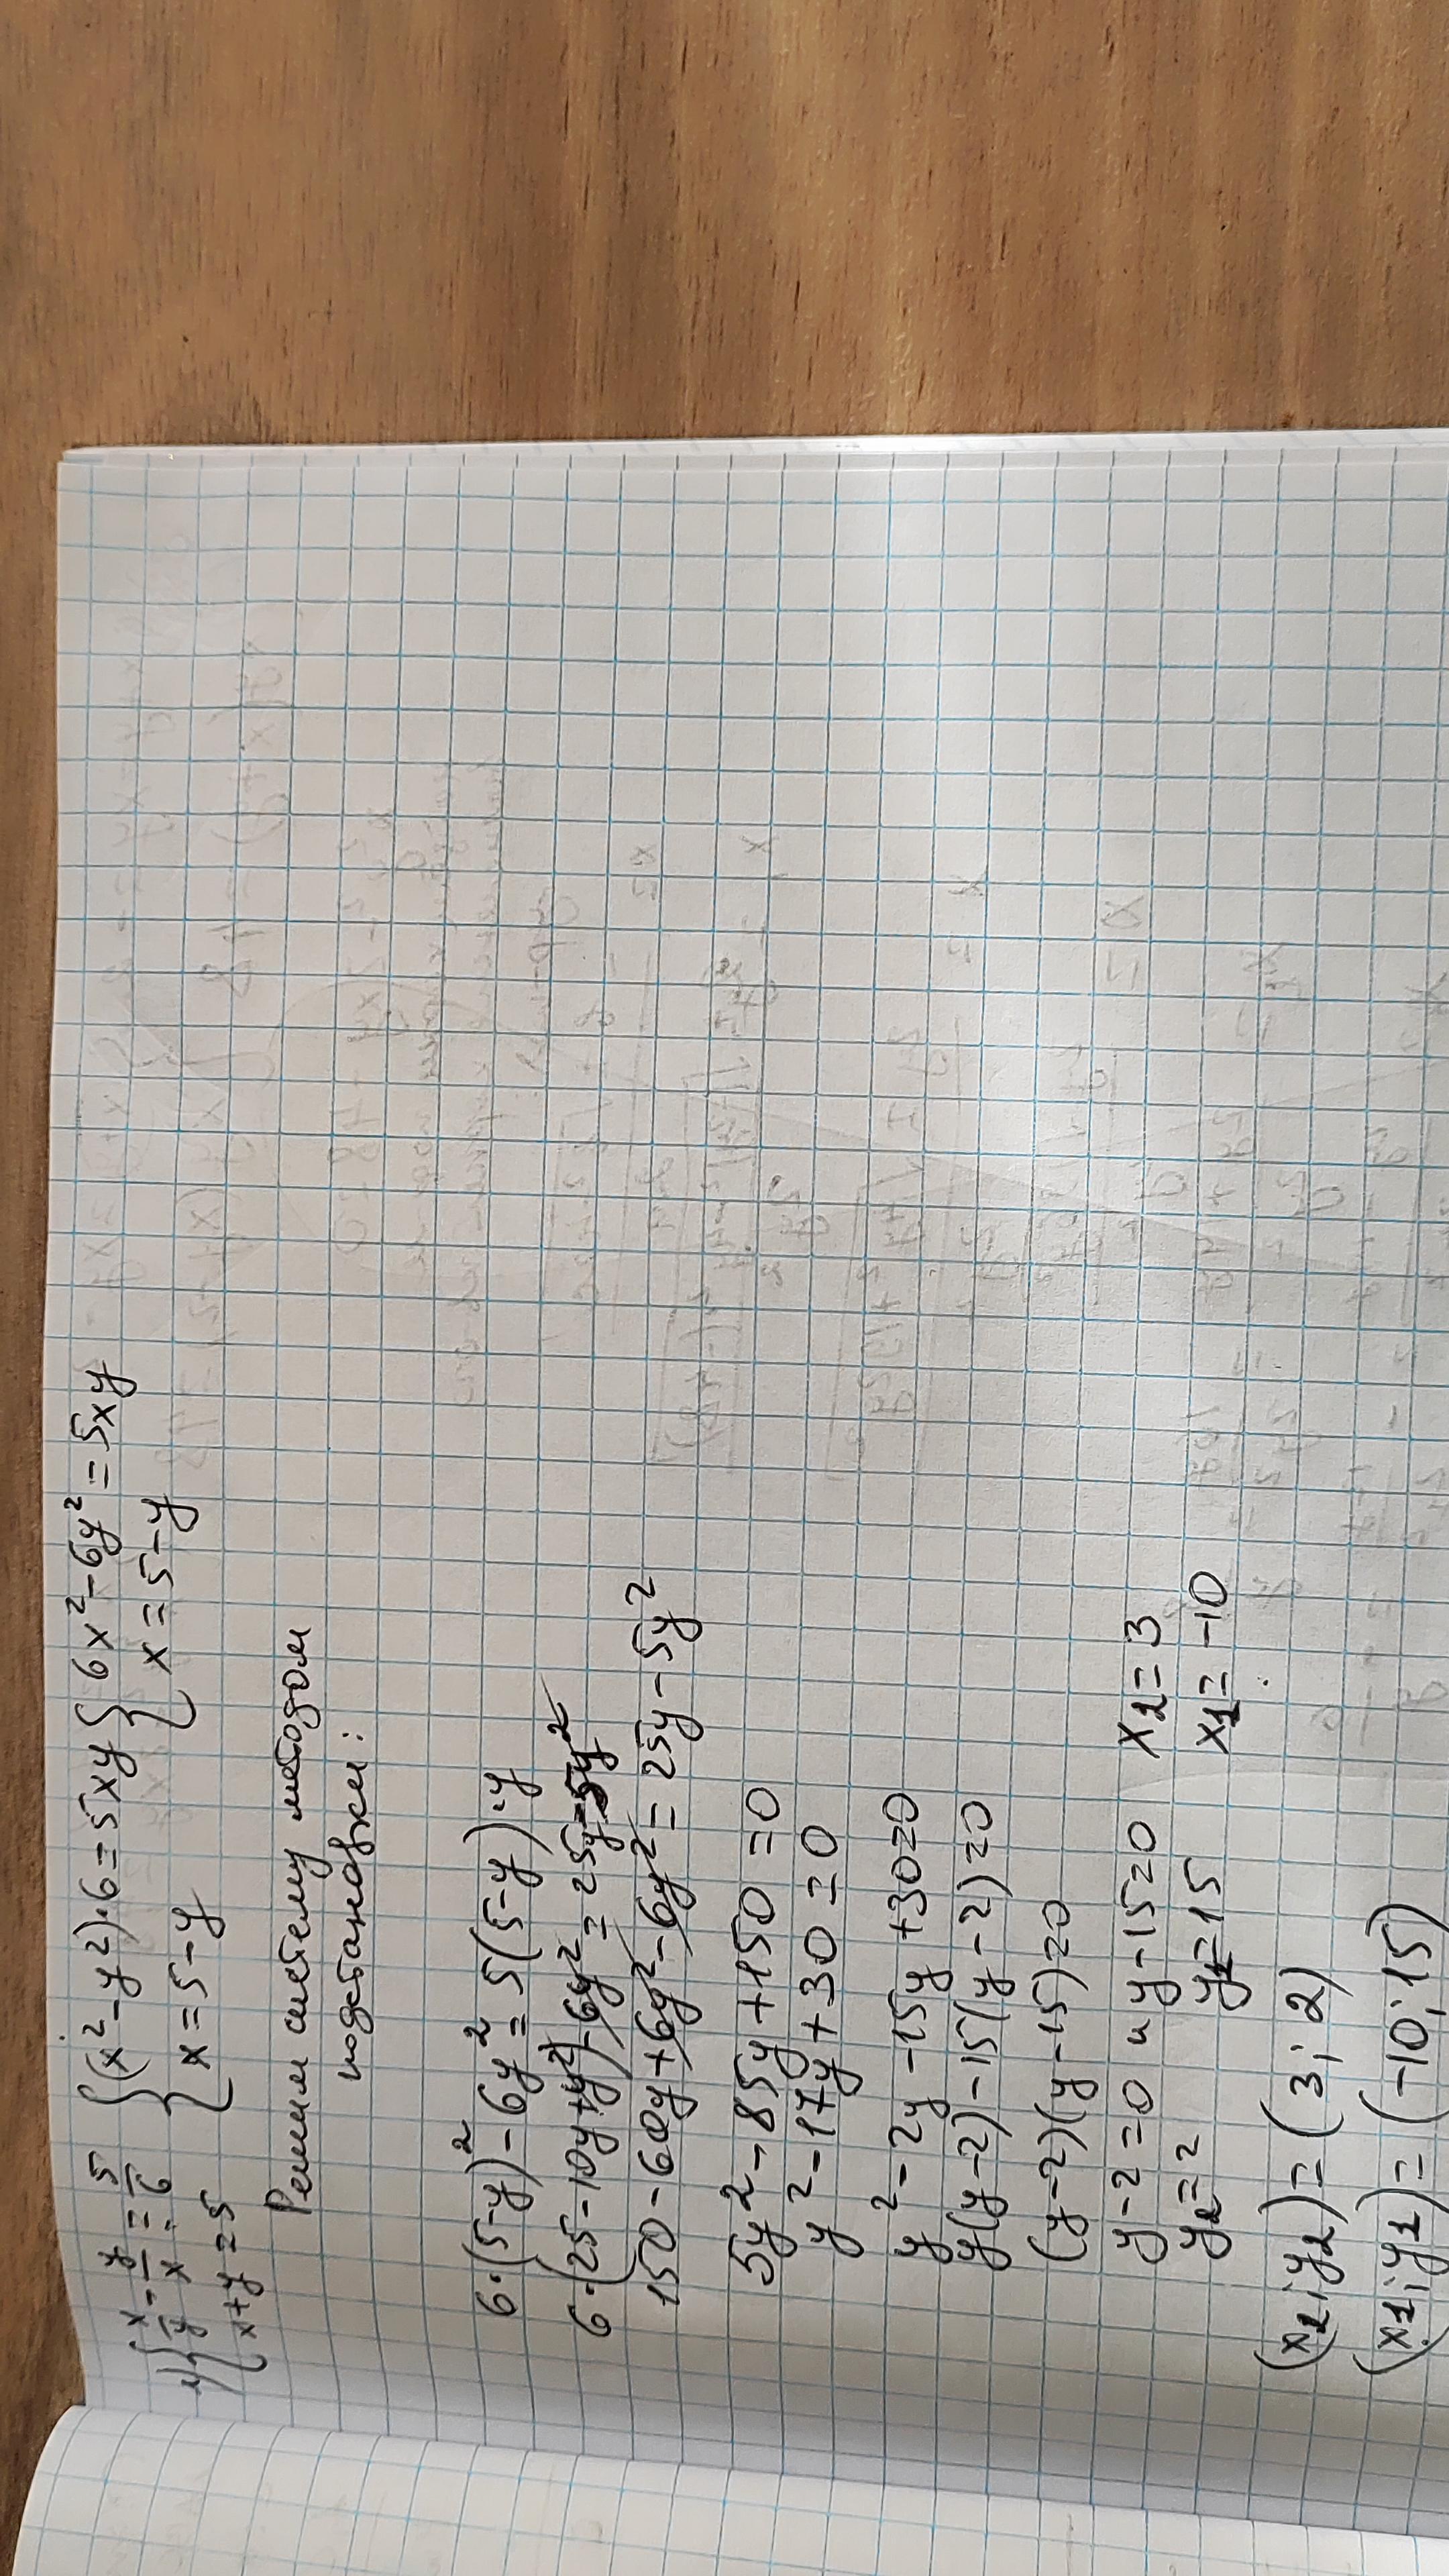 4) { x/y - y/x = 5/6 { (x² - y²)·6 = 5xy { 6x² - 6y² = 5xy
x + y = 5 x = 5 - y x = 5 - y
Решим систему методом
подстановки:
6·(5-y)² - 6y² = 5(5-y)·y
6·(25-10y+y²)-6y² = 25y-5y²
150-60y+6y²-6y² = 25y-5y²
5y²-85y+150 = 0
y²-17y+30 = 0
y²-2y-15y+30=0
y(y-2)-15(y-2)=0
(y-2)(y-15)=0
y-2=0 и y-15=0 x₂ = 3
y₂=2 y₁=15 x₁= -10
(x₂; y₂) = (3; 2)
(x₁; y₁) = (-10; 15)